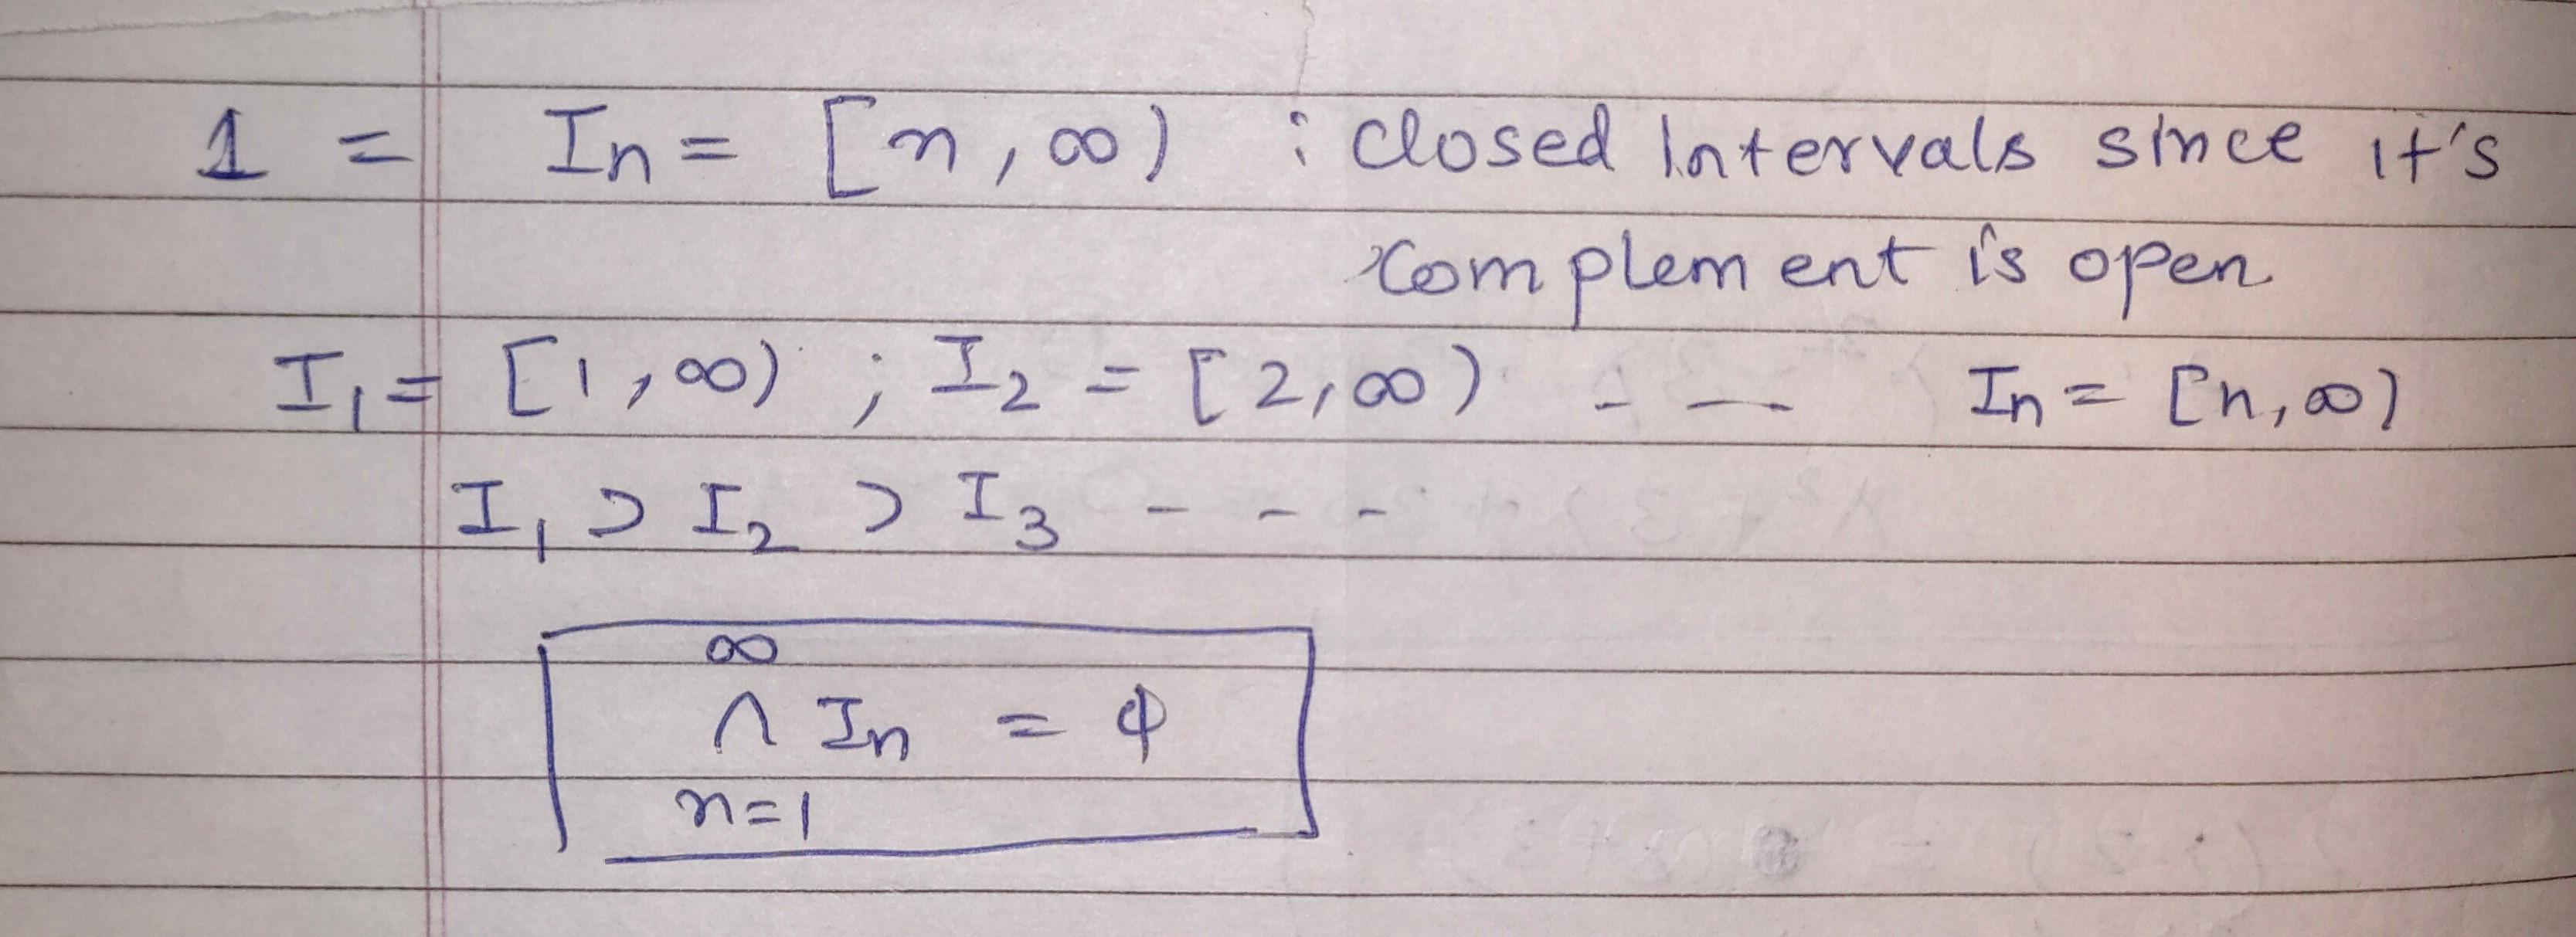 1 = In = [n, ∞) : closed Intervals since it's
complement is open
I₁ = [1, ∞) ; I₂ = [2, ∞) - — In = [n, ∞)
I₁ ⊃ I₂ ⊃ I₃ - - -
∞
∩ In = ϕ
n=1